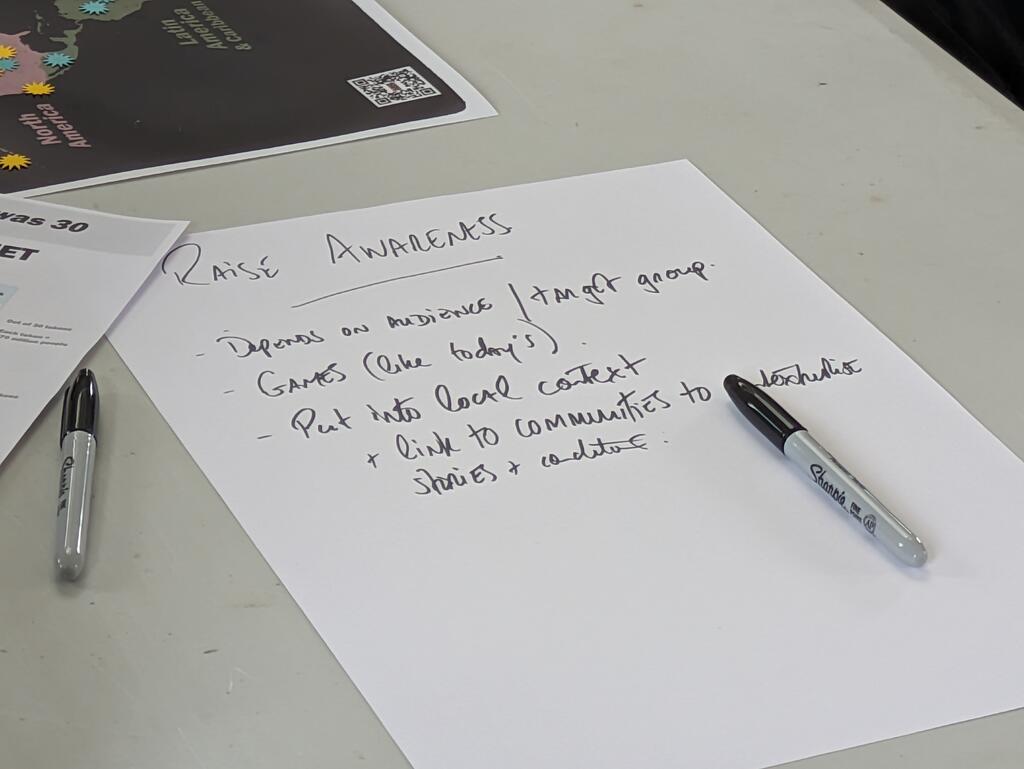 Latin
America
& Caribbean
North
America
was 30
ET
Out of 30 tokens
RAISE AWARENESS
- Depends on AUDIENCE / + mgt group.
- GAMES (like today's).
- Put into local context
+ link to communities to
stories +
Sharpie
Sharpie
FINE
AP